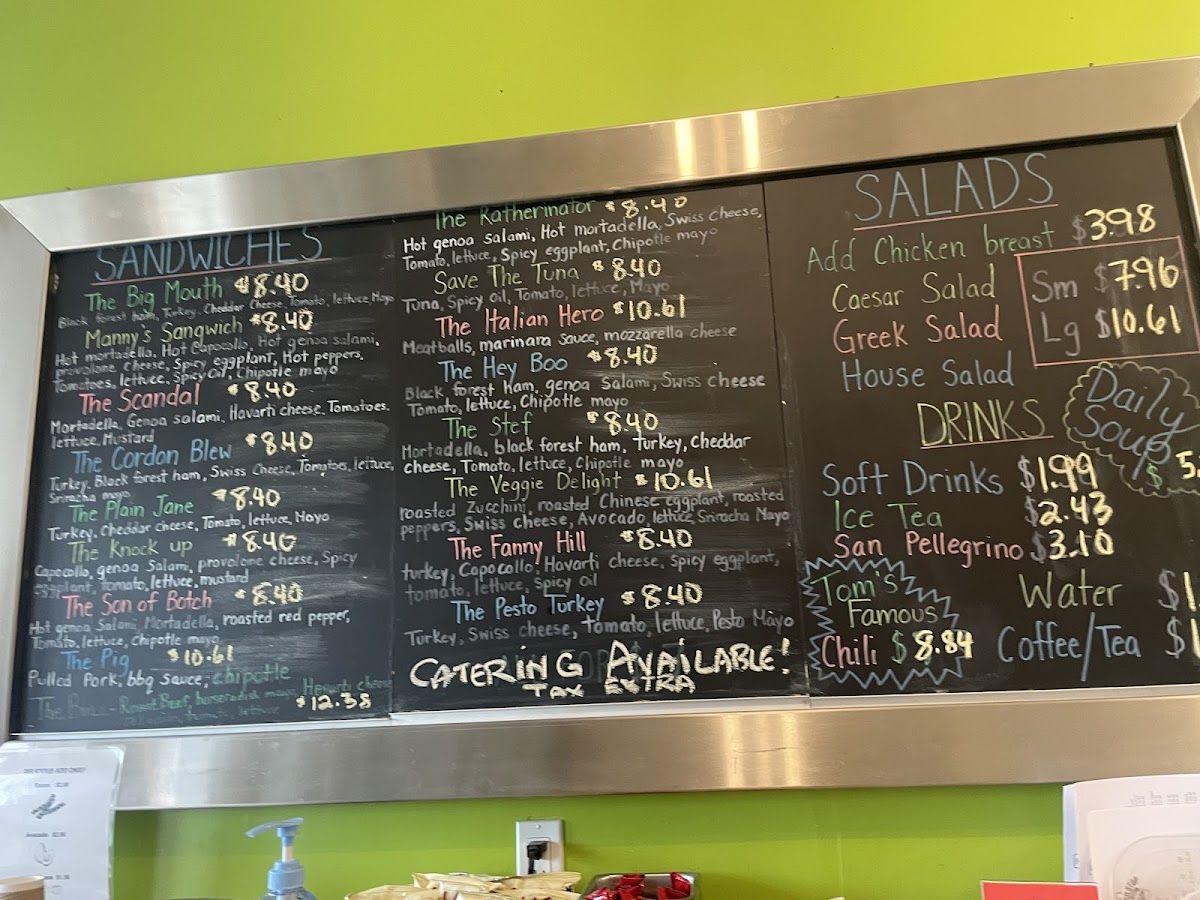 SANDWICHES
The Big Mouth $8.40
Black forest ham, Turkey, Cheddar Cheese, Tomato, lettuce, Mayo
Manny's Sangwich $8.40
Hot mortadella, Hot Capocollo, Hot genoa salami,
provolone cheese, Spicy eggplant, Hot peppers,
Tomatoes, lettuce, Spicy Oil, Chipotle mayo
The Scandal $8.40
Mortadella, Genoa salami, Havarti cheese, Tomatoes,
lettuce, Mustard
The Cordon Blew $8.40
Turkey, Black forest ham, Swiss Cheese, Tomatoes, lettuce,
Sriracha mayo
The Plain Jane $8.40
Turkey, Cheddar cheese, Tomato, lettuce, Mayo
The Knock up $8.40
Capocollo, genoa Salami, provolone cheese, Spicy
eggplant, tomato, lettuce, mustard
The Son of Botch $8.40
Hot genoa Salami, Mortadella, roasted red pepper,
Tomato, lettuce, Chipotle mayo
The Pig $10.61
Pulled Pork, bbq sauce, chipotle
The - Roast Beef, horseradish mayo, Havarti cheese
tomato, lettuce $12.38
The Ratherinator $8.40
Hot genoa salami, Hot mortadella, Swiss cheese,
Tomato, lettuce, Spicy eggplant, Chipotle mayo
Save The Tuna $8.40
Tuna, Spicy oil, Tomato, lettuce, Mayo
The Italian Hero $10.61
Meatballs, marinara sauce, mozzarella cheese
The Hey Boo $8.40
Black forest ham, genoa salami, Swiss cheese
Tomato, lettuce, Chipotle mayo
The Stef $8.40
Mortadella, black forest ham, Turkey, cheddar
cheese, Tomato, lettuce, Chipotle mayo
The Veggie Delight $10.61
roasted Zucchini, roasted Chinese eggplant, roasted
peppers, Swiss cheese, Avocado, lettuce, Sriracha Mayo
The Fanny Hill $8.40
turkey, Capocollo, Havarti cheese, Spicy eggplant,
tomato, lettuce, Spicy oil
The Pesto Turkey $8.40
Turkey, Swiss cheese, Tomato, lettuce, Pesto Mayo
CATERING AVAILABLE!
TAX EXTRA
SALADS
Add Chicken breast $3.98
Caesar Salad
Greek Salad
House Salad
Sm $7.96
Lg $10.61
DRINKS
Soft Drinks $1.99
Ice Tea $2.43
San Pellegrino $3.10
Water $1
Coffee/Tea $1
Daily
Soup
$5
Tom's
Famous
Chili $8.84